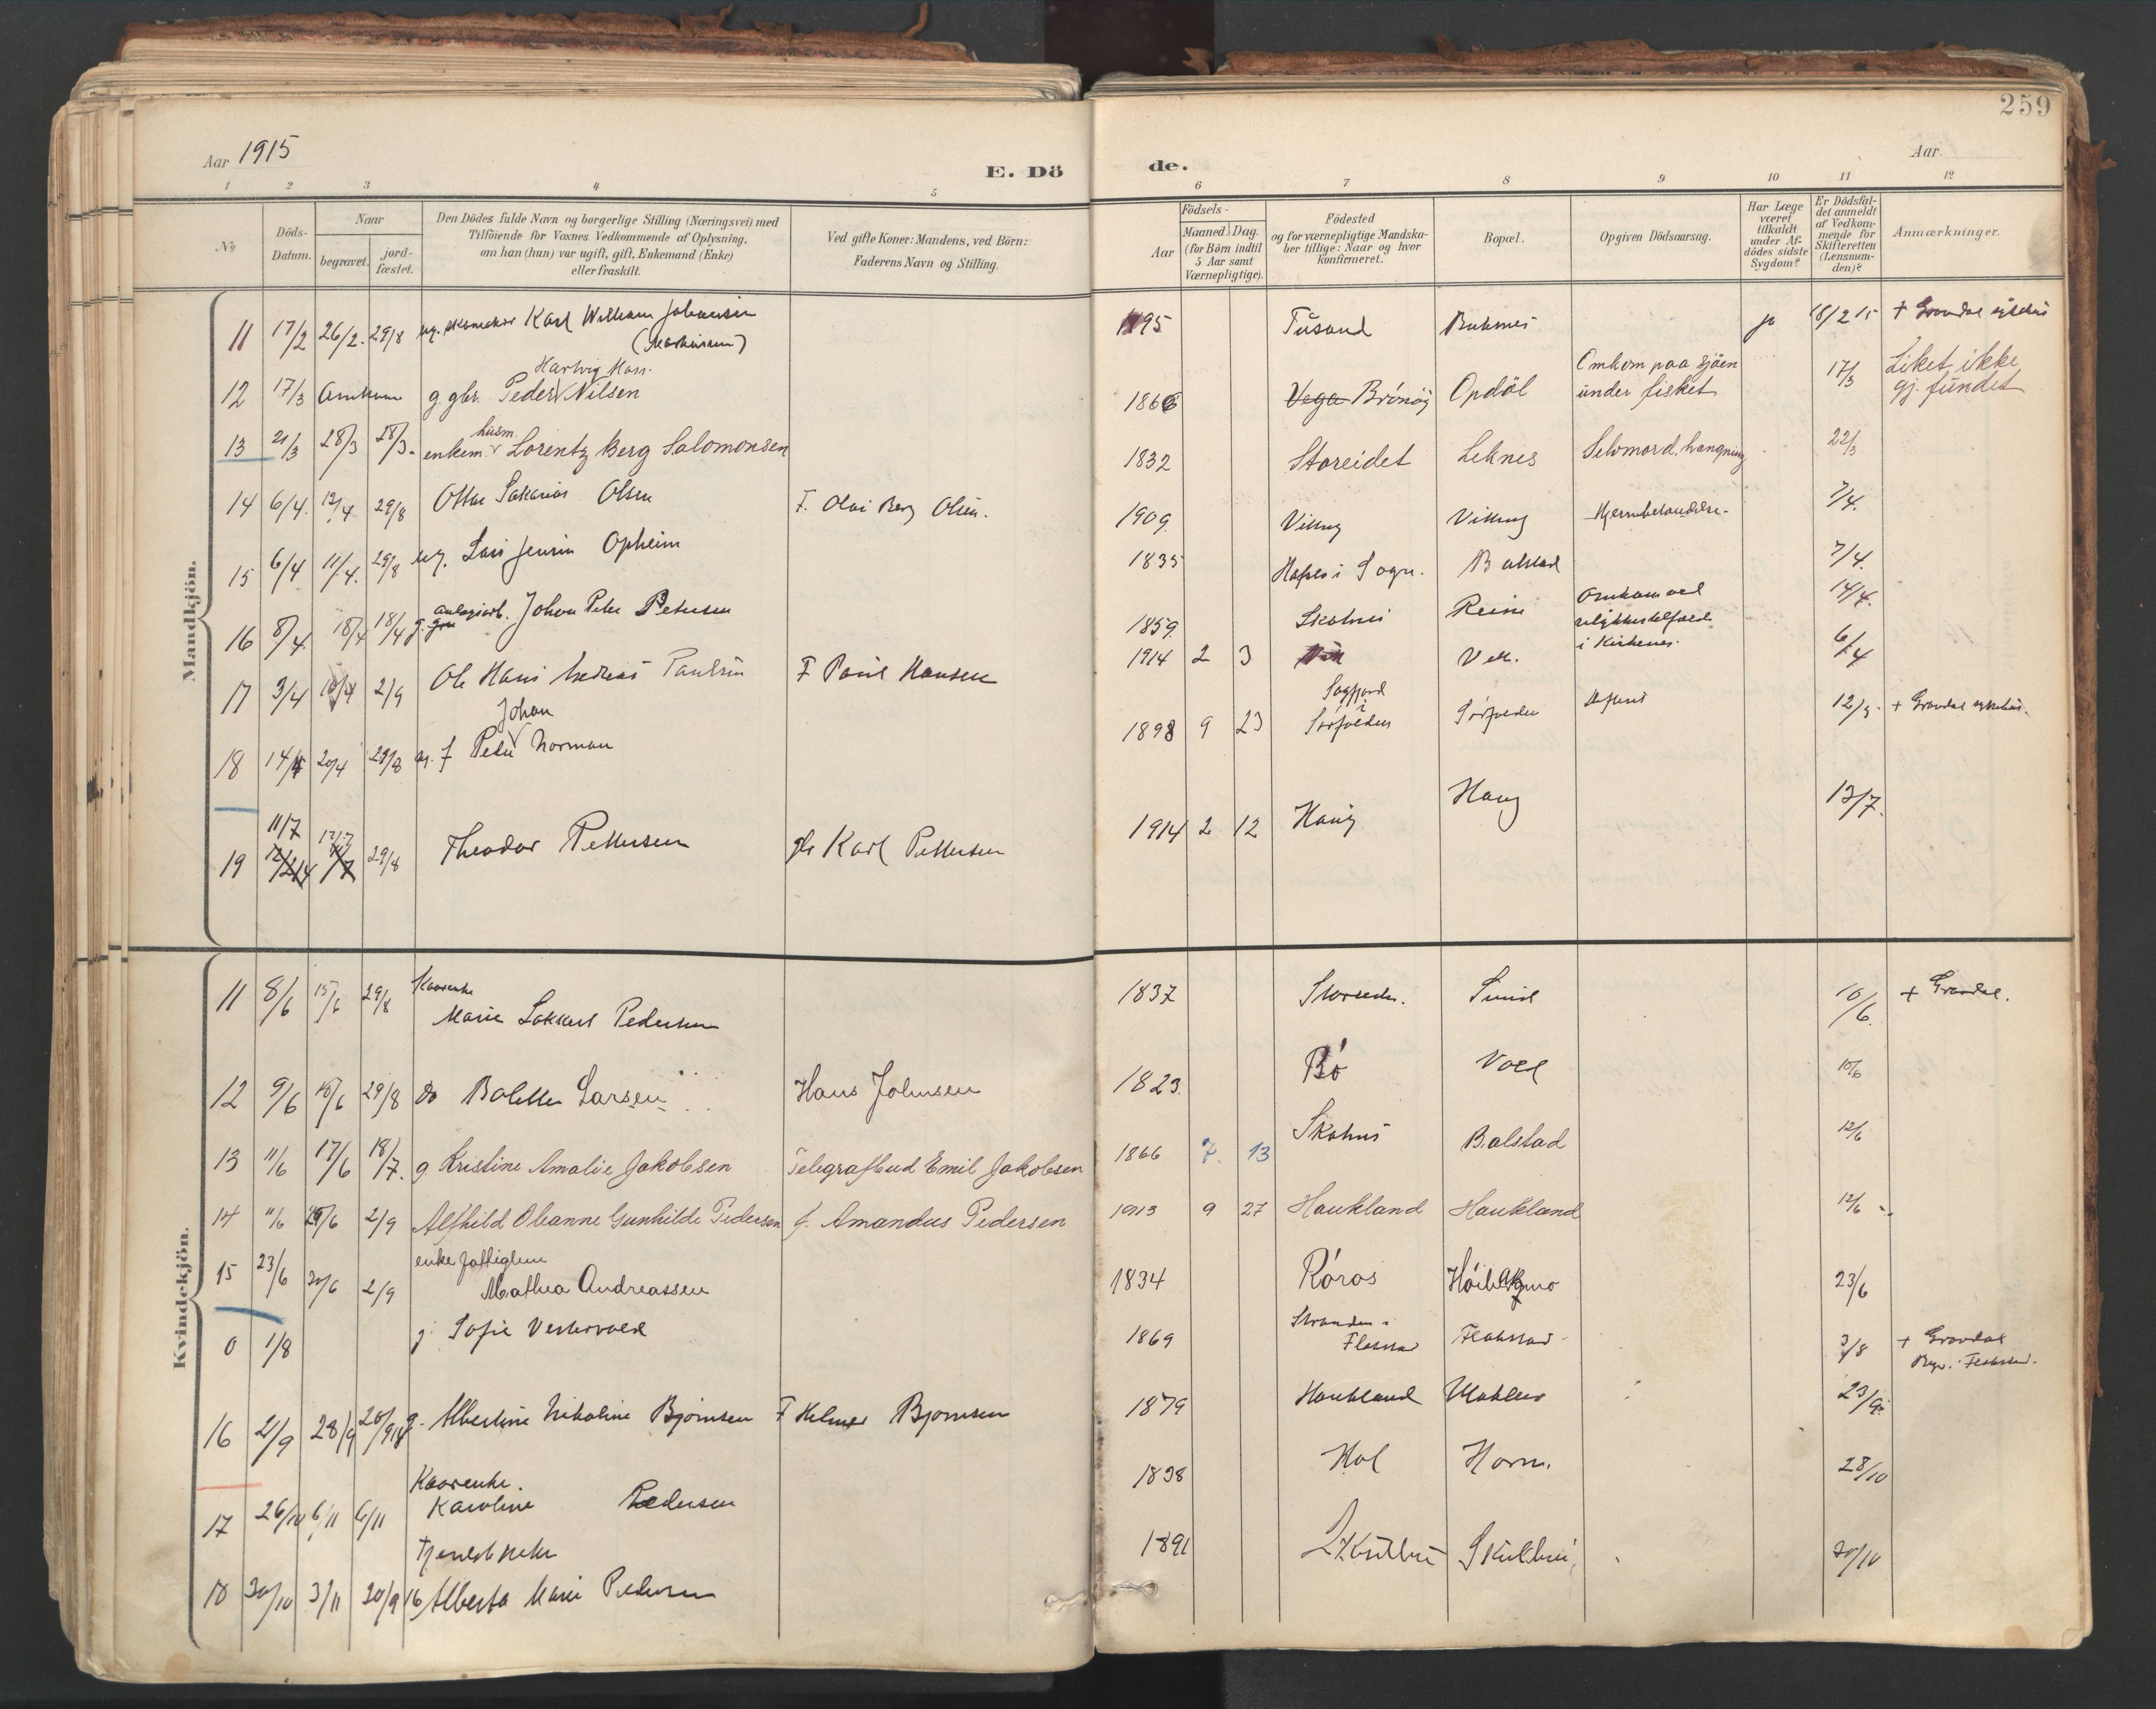 259
Aar 1915
E. Dö
de.
Aar
1 2 3 4 5 6 7 8 9 10 11 12
No
Döds-Datum.
Naar
begravet.
jord-fæstet.
Den Dödes fulde Navn og borgerlige Stilling (Næringsvei) med
Tilföiende for Voxnes Vedkommende af Oplysning,
om han (hun) var ugift, gift, Enkemand (Enke)
eller fraskilt.
Ved gifte Koner: Mandens, ved Börn:
Faderens Navn og Stilling.
Födsels-
Aar
Maaned. Dag.
(for Börn indtil
5 Aar samt
Værnepligtige).
Födested
og for værnepligtige Mandska-
ber tillige: Naar og hvor
konfirmeret.
Bopæl.
Opgiven Dödsaarsag.
Har Læge
været
tilkaldt
under Af-
dödes sidste
Sygdom?
Er Dödsfal-
det anmeldt
af Vedkom-
mende for
Skifteretten
(Lensman-
den)?
Anmærkninger.
Mandkjön.
11 17/2 26/2 29/8 ug. Karl William Johansen 1895 ja 18/2 15 + Gravdal
12 17/3 Omkom g. gbr. Peder Hartvig Nilsen 1866 Vega Brönöy Opdöl Omkom paa sjöen 17/3 Liket ikke
under fisket gj. fundet
13 21/3 28/3 28/3 enkem. husm. Lorentz Berg Salomonsen 1832 Storeidet Leknes Selvmord. hængning 22/3
14 6/4 12/4 29/8 Ottar Olsen F. Olai Berg Olsen. 1909 7/4.
15 6/4 11/4. 29/8 ug. Opheim 1835 i Sogn. Balstad 7/4.
16 8/4 18/4 18/4 g. Johan Peter Petersen 1859 Reine Omkom ved 14/4.
i Kirkenes.
17 3/4 2/9 Ole Hans Paulsen F Paul Hansen 1914 2 3 6/4
18 14/4 20/4 29/8 Peder Johan Norman 1898 9 23 Sagfjord i Sörfolden Sörfolden + Gravdal sykehus.
19 11/7 29/8 Theodor Pettersen gbr Karl Pettersen 1914 2 12 Haug Haug 13/7.
Kvindekjön.
11 8/6 15/6 29/8 Kaarenke
Marie Pedersen 1837 Sund 10/6. + Gravdal.
12 9/6 29/8 do Bolette Larsen Hans Johnsen 1823. Bö Voll 10/6
13 11/6 17/6 18/7. g Kristine Amalie Jakobsen Telegrafbud Emil Jakobsen 1866 7. 13 Balstad 12/6
14 11/6 2/9 Alfhild Oleanne Gunhilde Pedersen f. Amandus Pedersen 1913 9 27 Haukland Haukland 12/6
15 23/6 30/6 2/9 enke fattiglem
Mathea Andreassen 1834 Röros 23/6
0 1/8 g. Sofie 1869 Stranden i Flakstad Flakstad 3/8 + Gravdal
Begr. i Flakstad.
16 21/9 28/9 g. Albertine Nikoline Bjørnsen F Helmer Bjornsen 1879 Haukland 23/9.
17 26/10 6/11 6/11 Kaarenke.
Karoline Pedersen 1838 Hol Horn. 28/10
18 30/10 3/11 30/9 16 Alberta Marie Pedersen 1891 30/10